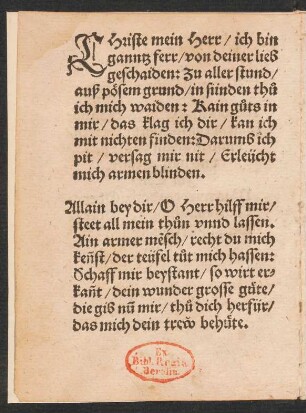 CHriste mein Herr/ ich bin
ganntz ferr/ von deiner lieb
geschaiden: Zu aller stund/
auß pösem grund/ in sünden thů
ich mich waiden: Kain gůts in
mir/ das klag ich dir/ kan ich
mit nichten finden: Darumb ich
pit/ versag mir nit/ Erleücht
mich armen blinden.
Allain bey dir/ O Herr hilff mir/
steet all mein thůn vnnd lassen.
Ain armer mẽsch/ recht du mich
keñst/ der teüfel tůt mich hassen:
Schaff mir beystant/ so wirt er-
kañt/ dein wunder grosse gůte/
die gib nũ mir/ thů dich herfür/
das mich dein trew behůte.
Ex
Bibl. Regia
Berolin.